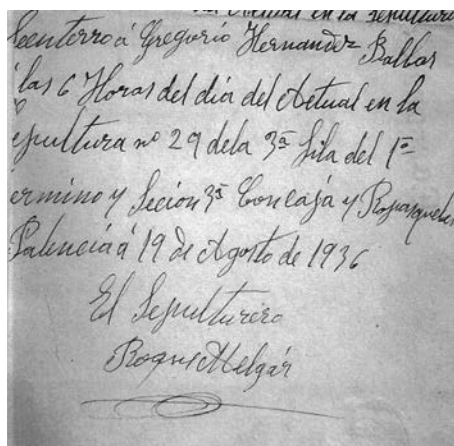 del Actual en la sepultura
Se enterro á Gregorio Hernandez Balbas
las 6 Horas del dia del Actual en la
epultura nº 29 dela 3ª fila del 1º
ermino y Secion 3ª Con caja y
Palencia á 19 de Agosto de 1936
El Sepulturero
Roque Melgár